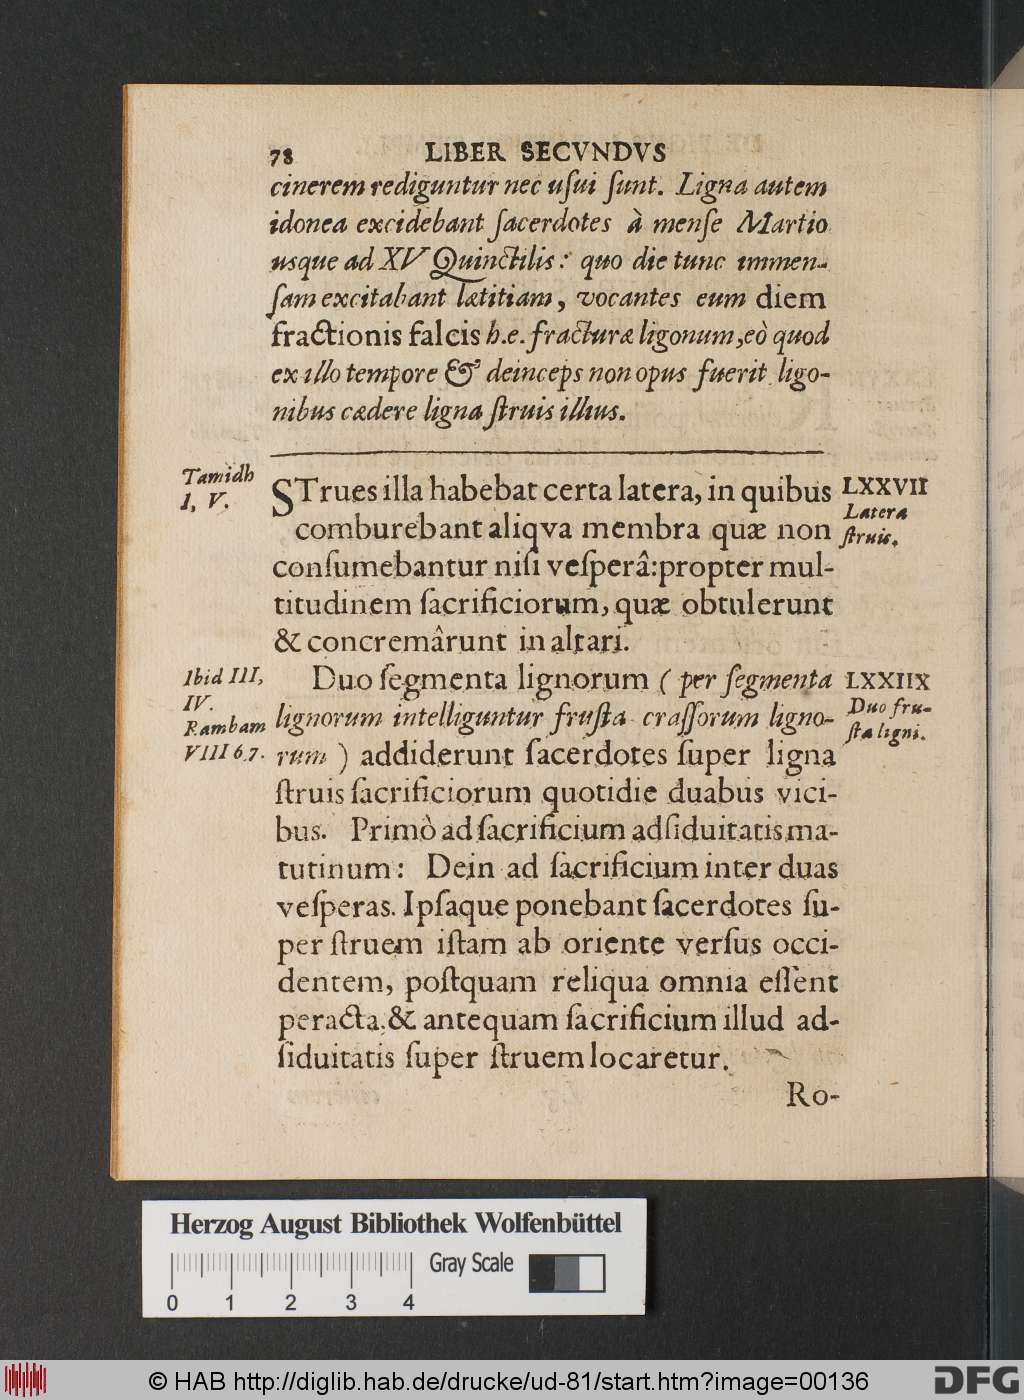 78 LIBER SECVNDVS
cinerem rediguntur nec uſui ſunt. Ligna autem
idonea excidebant ſacerdotes à menſe Martio
usque ad XV Quinctilis: quo die tunc immen-
ſam excitabant lætitiam, vocantes eum diem
fractionis falcis h.e. fracturæ ligonum, eò quod
ex illo tempore & deinceps non opus fuerit ligo-
nibus cædere ligna ſtruis illius.
Tamidh
I, V.
STrues illa habebat certa latera, in quibus
comburebant aliqva membra quæ non
conſumebantur niſi veſperâ: propter mul-
titudinem ſacrificiorum, quæ obtulerunt
& concremârunt in altari.
LXXVII
Latera
ſtruis.
Ibid III,
IV.
Rambam
VIII 6.7.
Duo ſegmenta lignorum ( per ſegmenta
lignorum intelliguntur fruſta craſſorum ligno-
rum ) addiderunt ſacerdotes ſuper ligna
ſtruis ſacrificiorum quotidie duabus vici-
bus. Primò ad ſacrificium adſiduitatis ma-
tutinum: Dein ad ſacrificium inter duas
veſperas. Ipſaque ponebant ſacerdotes ſu-
per ſtruem iſtam ab oriente verſus occi-
dentem, poſtquam reliqua omnia eſſent
peracta, & antequam ſacrificium illud ad-
ſiduitatis ſuper ſtruem locaretur.
LXXIIX
Duo fru-
ſta ligni.
Ro-
Herzog August Bibliothek Wolfenbüttel
Gray Scale
0 1 2 3 4
© HAB http://diglib.hab.de/drucke/ud-81/start.htm?image=00136
DFG